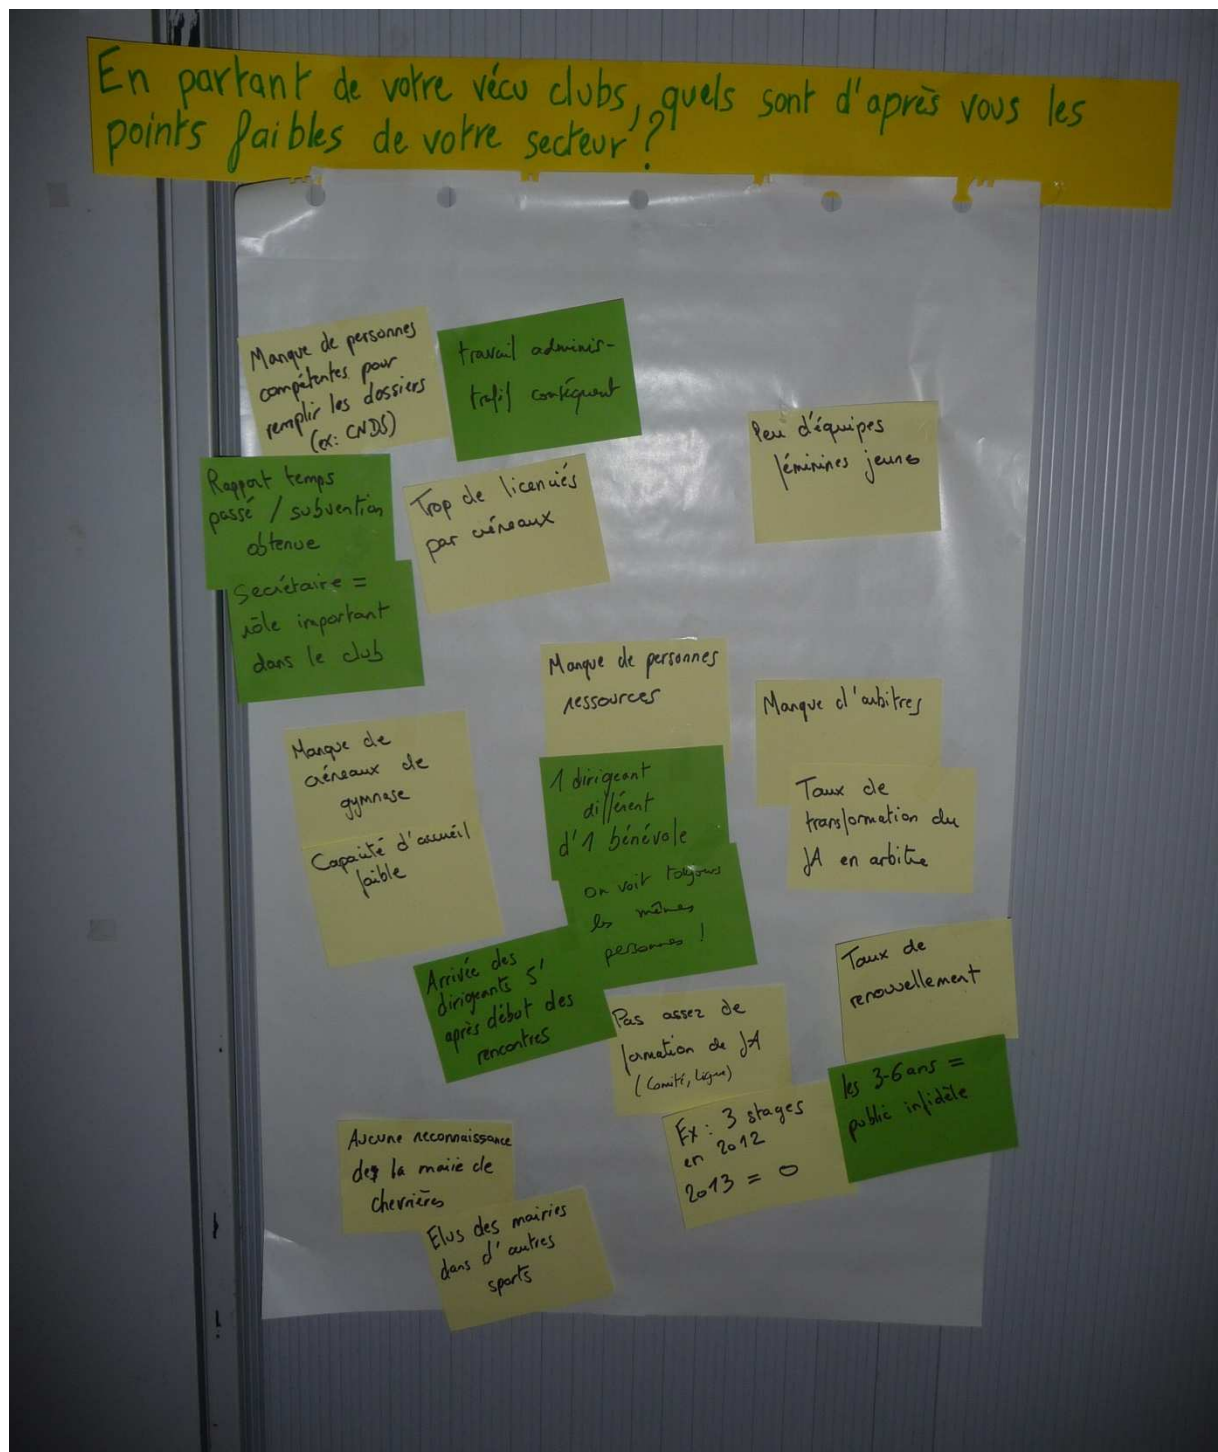 En partant de votre vécu clubs, quels sont d'après vous les
points faibles de votre secteur ?
Manque de personnes
compétentes pour
remplir les dossiers
(ex: CNDS)
travail adminis-
tratif conséquent
Peu d'équipes
féminines jeunes
Rapport temps
passé / subvention
obtenue
Trop de licenciés
par créneaux
Secrétaire =
rôle important
dans le club
Manque de personnes
ressources
Manque d'arbitres
Manque de
créneaux de
gymnase
1 dirigeant
différent
d'1 bénévole
Taux de
transformation du
JA en arbitre
Capacité d'accueil
faible
On voit toujours
les mêmes
personnes !
Arrivée des
dirigeants 5'
après début des
rencontres
Taux de
renouvellement
Pas assez de
formation de JA
(Comité, Ligue)
les 3-6ans =
public infidèle
Ex : 3 stages
en 2012
2013 = 0
Aucune reconnaissance
de la mairie de
chevrières
Elus des mairies
dans d'autres
sports